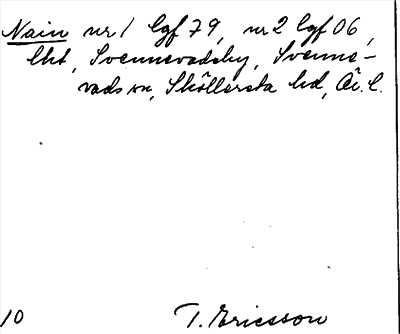 Nain nr 1 lgf 79, nr 2 lgf 06,
lht, Svennevadsby, Svenne-
vads sn, Sköllersta hd, Ö.l.
10 T. Ericsson